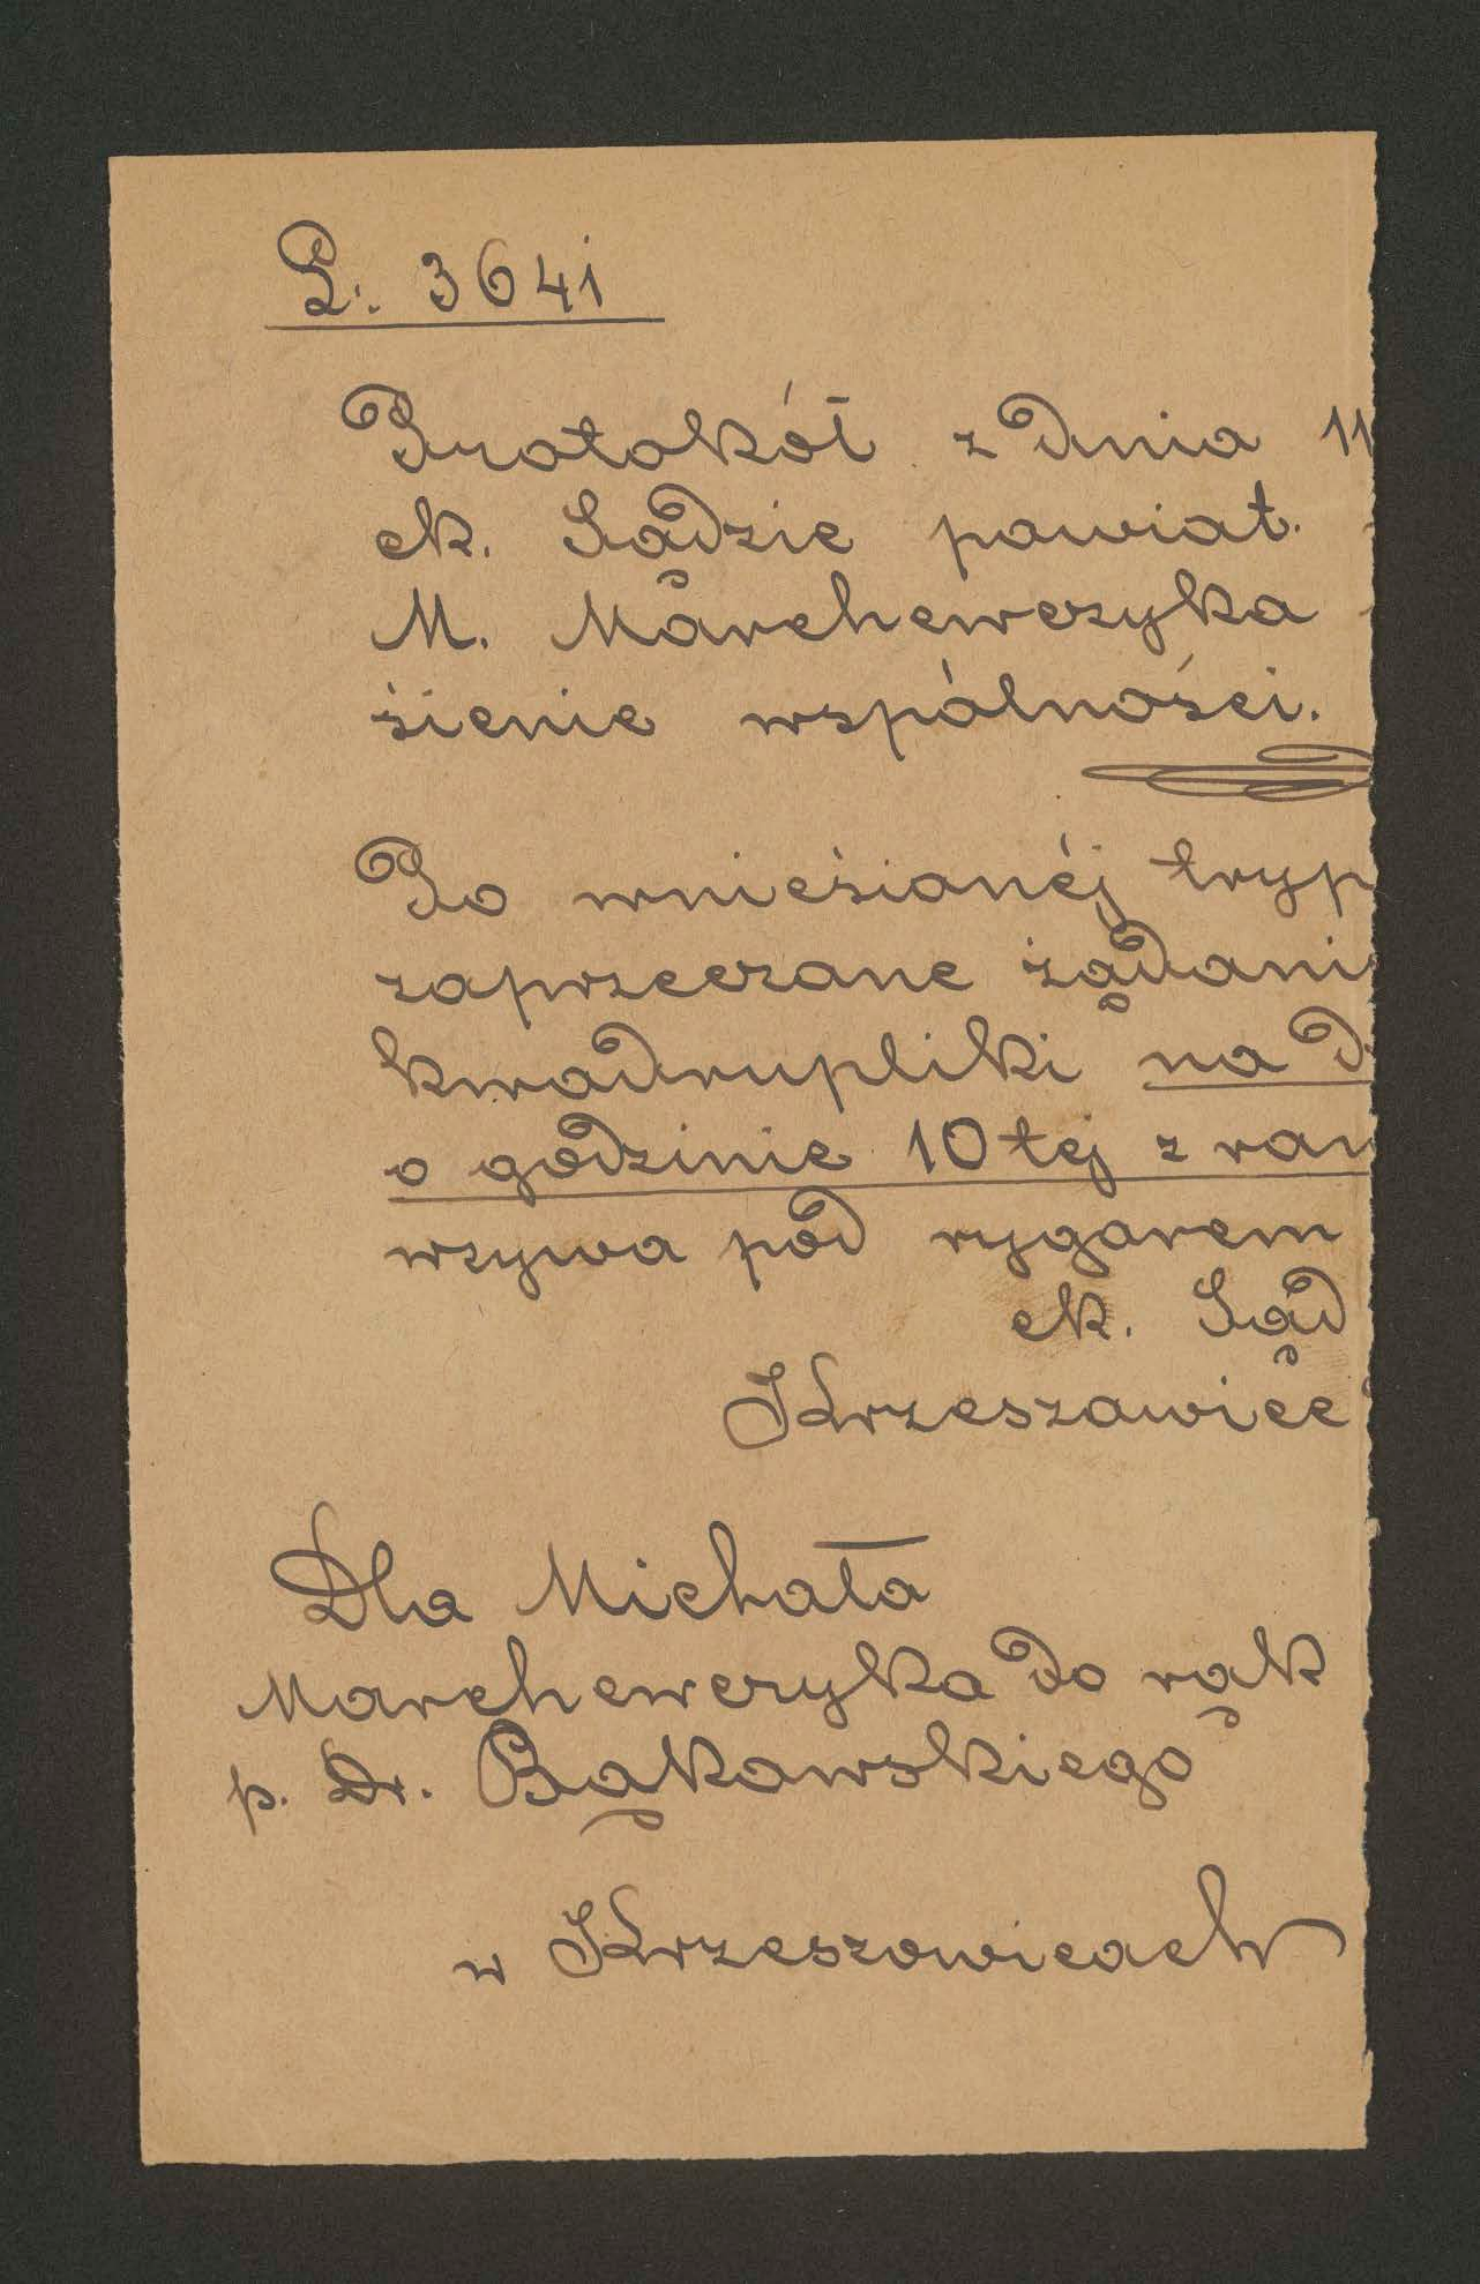 L: 3641
Protokół z dnia 11
ck. Sądzie powiat.
M. Marchewczyka
sienie wspólności.
Po wniesionéj tryp
zaprzeczone żądani
kwadrupliki na d
o godzinie 10tej z ran
wzywa pod rygorem
ck. Sąd
Krzeszowice
Dla Michała
Marchewczyka do rąk
p. Dr. Bąkowskiego
w Krzeszowicach